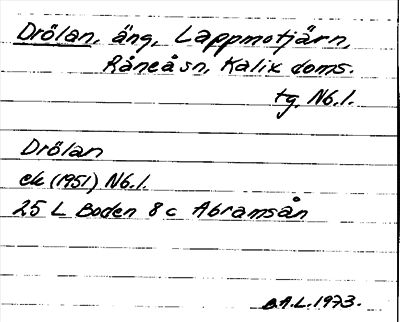 Drölan, äng, Lappmotjärn,
Råneåsn, Kalix doms.
tg. Nb.l.
Drölan
ek (1951) Nb.l.
25 L Boden 8 c Abramsån
A.L. 1973.